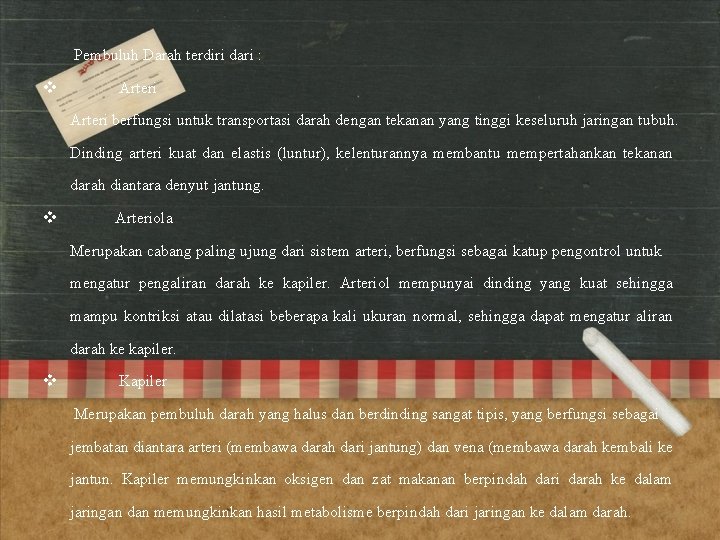 Pembuluh Darah terdiri dari :
❖ Arteri
Arteri berfungsi untuk transportasi darah dengan tekanan yang tinggi keseluruh jaringan tubuh.
Dinding arteri kuat dan elastis (luntur), kelenturannya membantu mempertahankan tekanan
darah diantara denyut jantung.
❖ Arteriola
Merupakan cabang paling ujung dari sistem arteri, berfungsi sebagai katup pengontrol untuk
mengatur pengaliran darah ke kapiler. Arteriol mempunyai dinding yang kuat sehingga
mampu kontriksi atau dilatasi beberapa kali ukuran normal, sehingga dapat mengatur aliran
darah ke kapiler.
❖ Kapiler
Merupakan pembuluh darah yang halus dan berdinding sangat tipis, yang berfungsi sebagai
jembatan diantara arteri (membawa darah dari jantung) dan vena (membawa darah kembali ke
jantun. Kapiler memungkinkan oksigen dan zat makanan berpindah dari darah ke dalam
jaringan dan memungkinkan hasil metabolisme berpindah dari jaringan ke dalam darah.